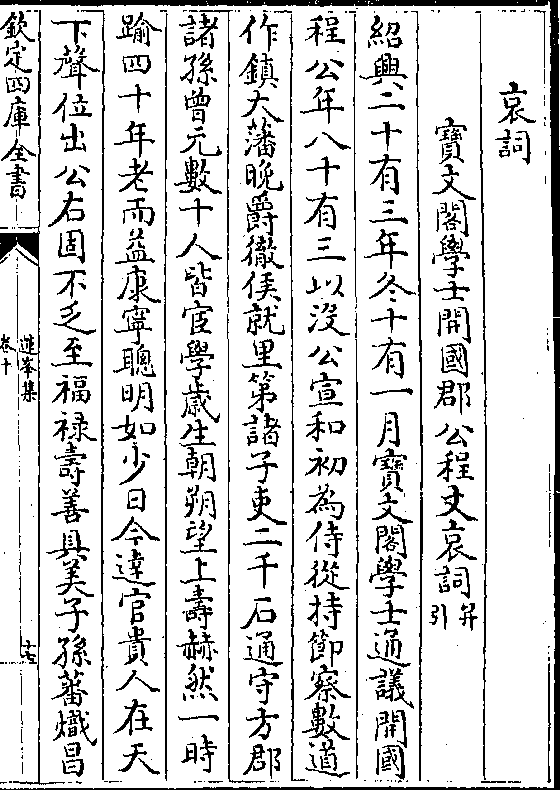 哀詞
寶文閣學士開國郡公程丈哀詞并引
紹興二十有三年冬十有一月寶文閣學士通議開國
程公年八十有三以沒公宣和初為侍從持節察數道
作鎮大藩晚爵徹侯就里第諸子吏二千石通守方郡
諸孫曾元數十人皆宦學歲生朝朔望上壽赫然一時
踰四十年老而益康寧聰明如少日今達官貴人在天
下聲位出公右固不乏至福祿壽善具美子孫蕃熾昌
欽定四庫全書
蓮峯集
卷十